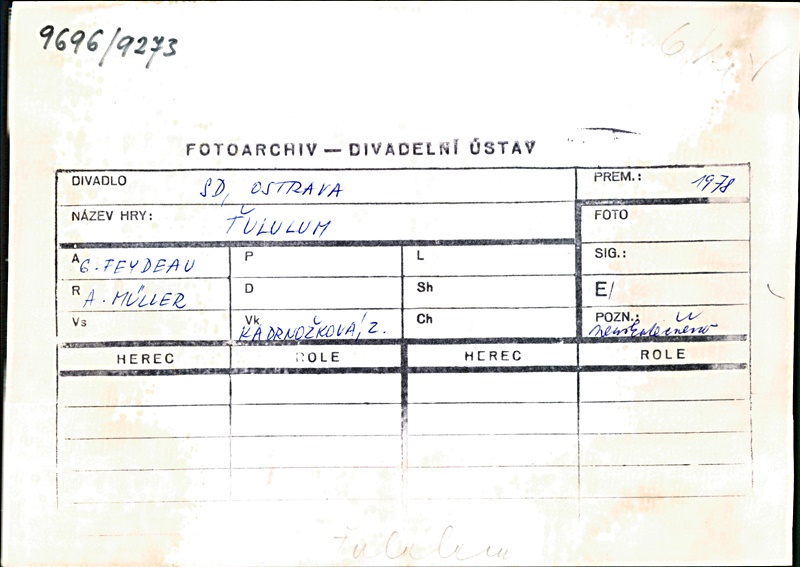 9696/9273
FOTOARCHIV — DIVADELNÍ ÚSTAV
DIVADLO SD, OSTRAVA
PREM.: 1978
NÁZEV HRY: ŤULULUM
FOTO
A G. FEYDEAU
P
L
SIG.:
R A. MÜLLER
D
Sh
E/
Vs
Vk KADRNOŽKOVÁ, Z.
Ch
POZN.:
HEREC ROLE HEREC ROLE
Ťululum